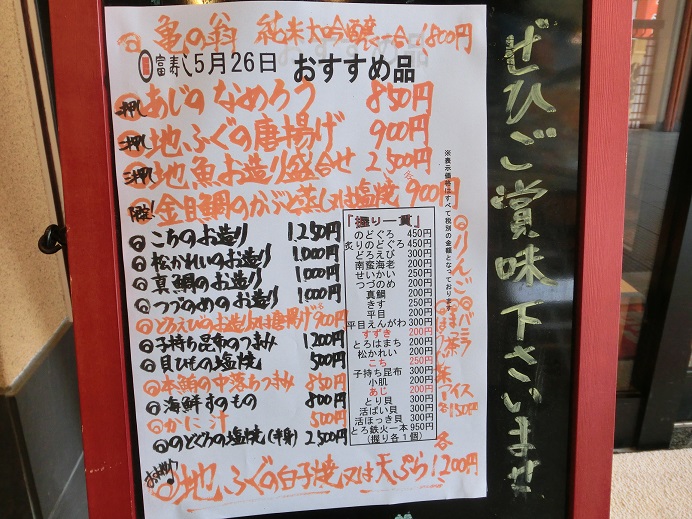 亀の翁 純米大吟醸 一合 1800円
富寿し 5月26日 おすすめ品
押し あじのなめろう 850円
押し 地ふぐの唐揚げ 900円
押し 地魚お造り盛合せ 2,500円
限定 金目鯛のかぶと蒸し又は塩焼 各900円
こちのお造り 1,250円
松かれいのお造り 1,000円
真鯛のお造り 1,000円
つづのめのお造り 1,000円
どろえびのお造り又は唐揚げ 900円
子持ち昆布のつまみ 1200円
貝ひもの塩焼 500円
本鮪の中落ちつまみ 850円
海鮮すのもの 800円
かに汁 500円
のどぐろの塩焼(半身) 2500円
地ふぐの白子焼又は天ぷら 各1,200円
『握り一貫』
のどぐろ 450円
炙りのどぐろ 450円
どろえび 300円
南蛮海老 200円
せいかい 250円
つづのめ 200円
真鯛 200円
きす 200円
平目 200円
平目えんがわ 300円
すずき 200円
とろはまち 200円
松かれい 200円
こち 250円
子持ち昆布 200円
小肌 200円
あじ 200円
とり貝 200円
活ばい貝 300円
活ほっき貝 300円
とろ鉄火一本 950円
(握り各1個)
※表示価格はすべて税別の金額となっております。
りんご
バニラ
ほうじ茶
アイス
各150円
ぜひご賞味下さいませ